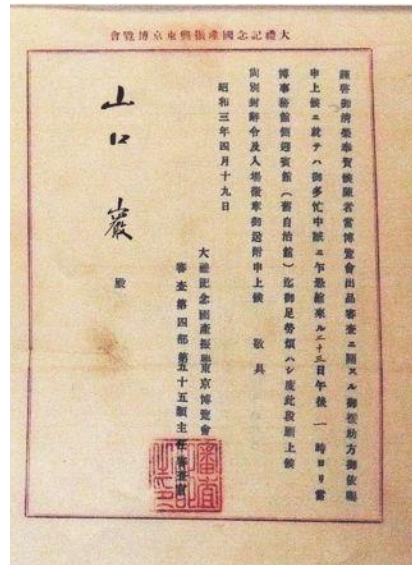 大禮記念國產振興東京博覽會
謹啓御淸榮奉賀候陳者當博覽會出品審査ニ關スル御援助方御依囑
申上候ニ就テハ御多忙中誠ニ乍恐縮來ル二十三日午後一時ヨリ當
博事務館側迎賓館(舊自治館)迄御足勞煩ハシ度此段願上候
尙別封辭令及入場徽章御送附申上候 敬具
昭和三年四月十九日
大禮記念國產振興東京博覽會
審査第四部第五十五類主任審査官
山口巖 殿